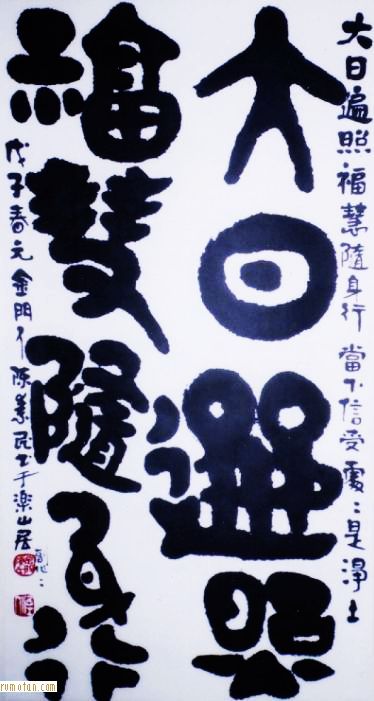 大日遍照福慧隨身行 當下信受處〻是淨土
大日遍照
福慧隨身行
戊子春元金門人陳民书于楽山居
rumotan.com